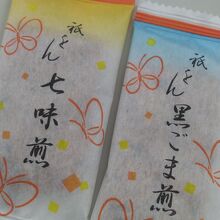 祇をん
七味煎
祇をん
黒ごま煎